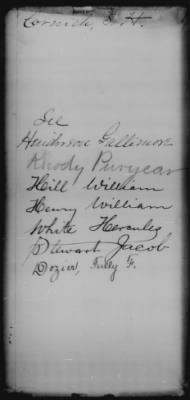 Cornich, S. H.
See
Henderson Gallimore
Rhody Puryear
Hill William
Henry William
White Hercules
Stewart Jacob
Dozier, Fully F.